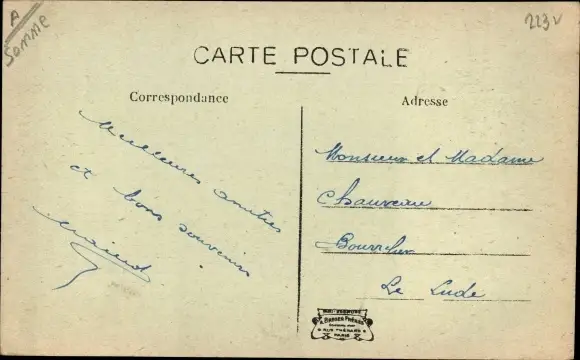 A
Somme
223 v
CARTE POSTALE
Correspondance
Adresse
Meilleures amitiés
et bons souvenirs
Monsieur et Madame
Chauveau
Bourrelier
Le Lude
PARIS